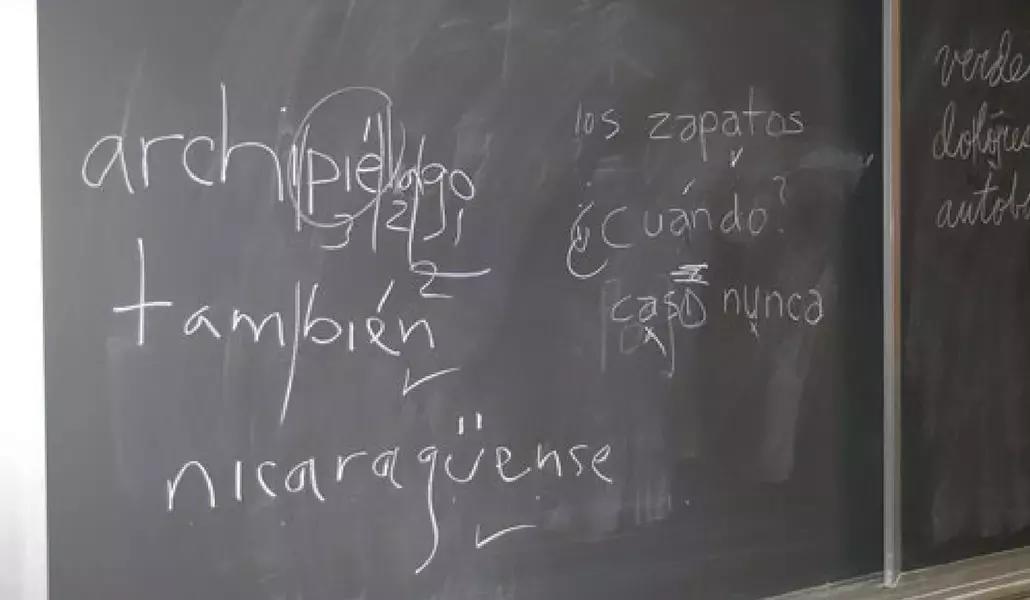 archipiélago
3 2 1
también
2
nicaragüense
los zapatos
¿Cuándo?
casi nunca
verde
dolores